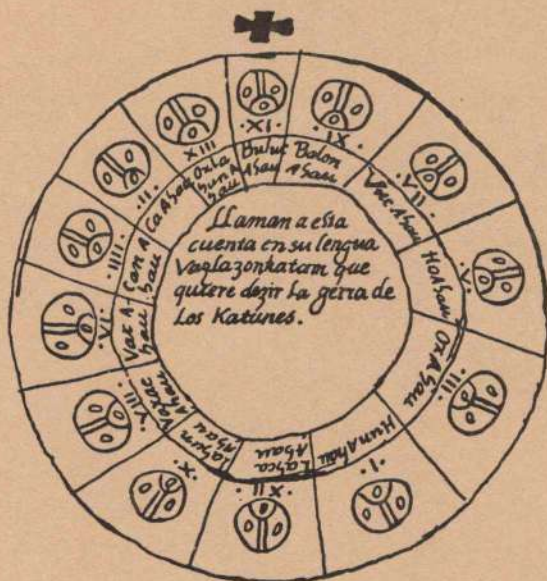 LLaman a esta
cuenta en su lengua
Vazlazonkatam que
quiere dezir La gerra de
Los Katunes.
·XI·
Buluc
Ahau
·IX·
Bolon
Ahau
·VII·
Vuc Ahau
·V·
Hoahau
·III·
OxAhau
·I·
HunAhau
·XII·
Lahca
Ahau
·X·
Lahun
Ahau
·VIII·
Vaxac
Ahau
·VI·
Vac A-
hau
·IIII·
Can A
hau
·II·
Ca Ahau
XIII
Oxla
hun A
hau